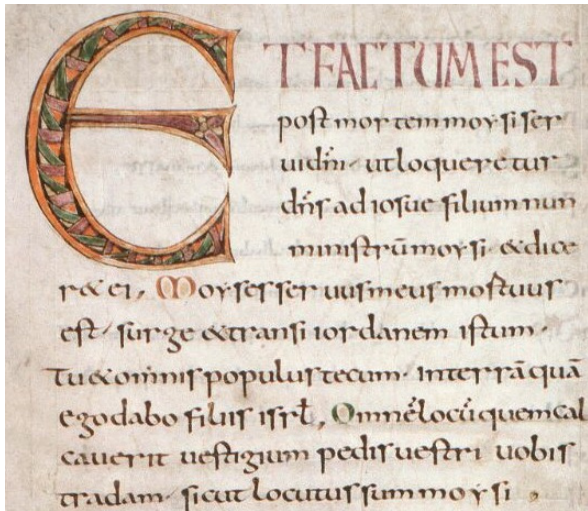 ET FACTUM EST
post mortem moysi ser
ui dn̄i · ut loqueretur
dn̄s ad iosue filium nun
ministrū moysi · & dice
r& ei, Moyses seruus meus mortuus
est · surge & transi iordanem istum ·
Tu & omnis populus tecum · in terrā quā
ego dabo filiis isrł, Omnē locū quem cal
cauerit uestigium pedis uestri uobis
tradam · sicut locutus sum moysi ·